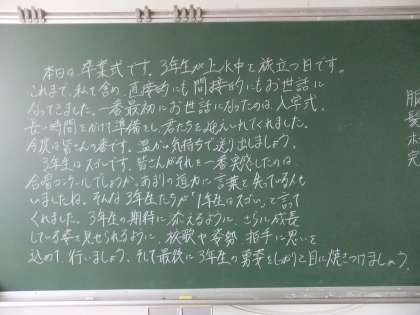 本日は、卒業式です。3年生が上ノ中を旅立つ日です。
これまで、私も含め、直接的にも間接的にもお世話に
なってきました。一番最初にお世話になったのは、入学式。
長い時間をかけて準備をし、君たちを迎え入れてくれました。
今度は皆さんの番です。温かい気持ちで送り出しましょう。
3年生はスゴいです。皆さんがそれを一番実感したのは
合唱コンクールでしょうか。あまりの迫力に言葉を失っている人も
いましたね。そんな3年生たちが「1年生はスゴい」と言って
くれました。3年生の期待に応えるように、さらに成長
している姿を見せられるように、旅歌や姿勢、拍手に思いを
込めて、行いましょう。そして最後に3年生の勇姿をしっかりと目に焼きつけましょう。
服
髪
完